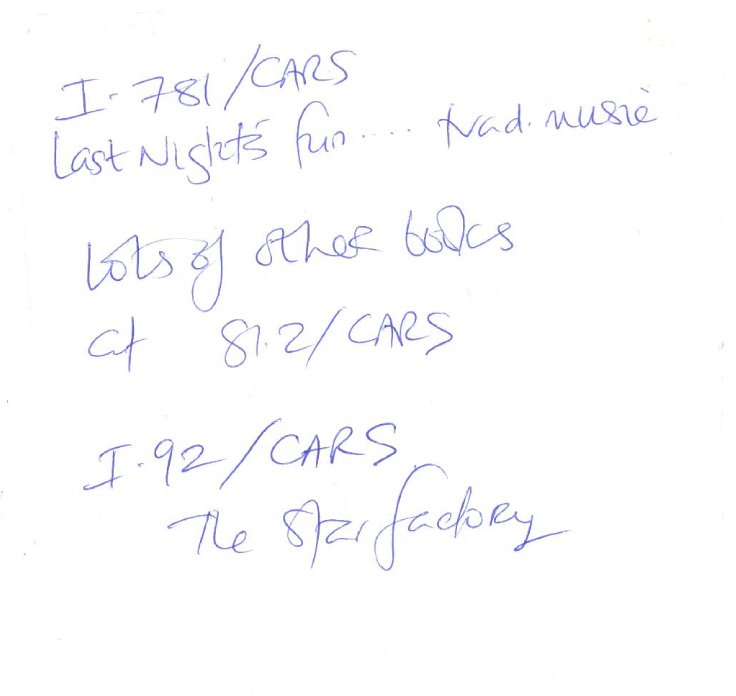 I. 781/CARS
Last Night's fun.... trad. music
Lots of other books
at 81.2/CARS
I. 92/CARS
The Star factory